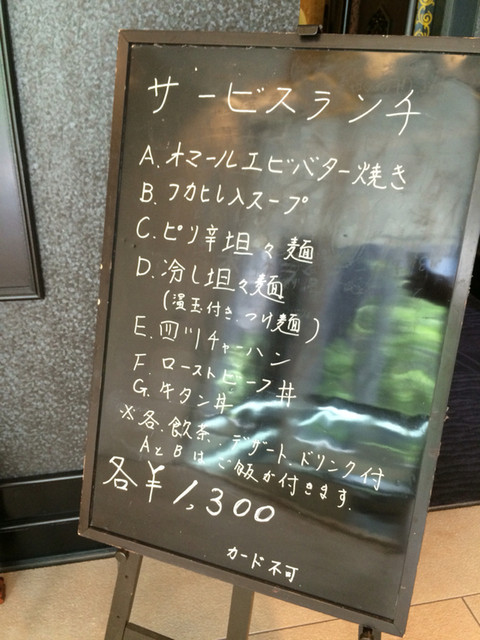 サービスランチ
A. オマールエビバター焼き
B. フカヒレ入スープ
C. ピリ辛坦々麺
D. 冷し坦々麺
(温玉付き、つけ麺)
E. 四川チャーハン
F. ローストビーフ丼
G. 牛タン丼
※各、飲茶、デザート、ドリンク付
AとBはご飯が付きます.
各¥1,300
カード不可